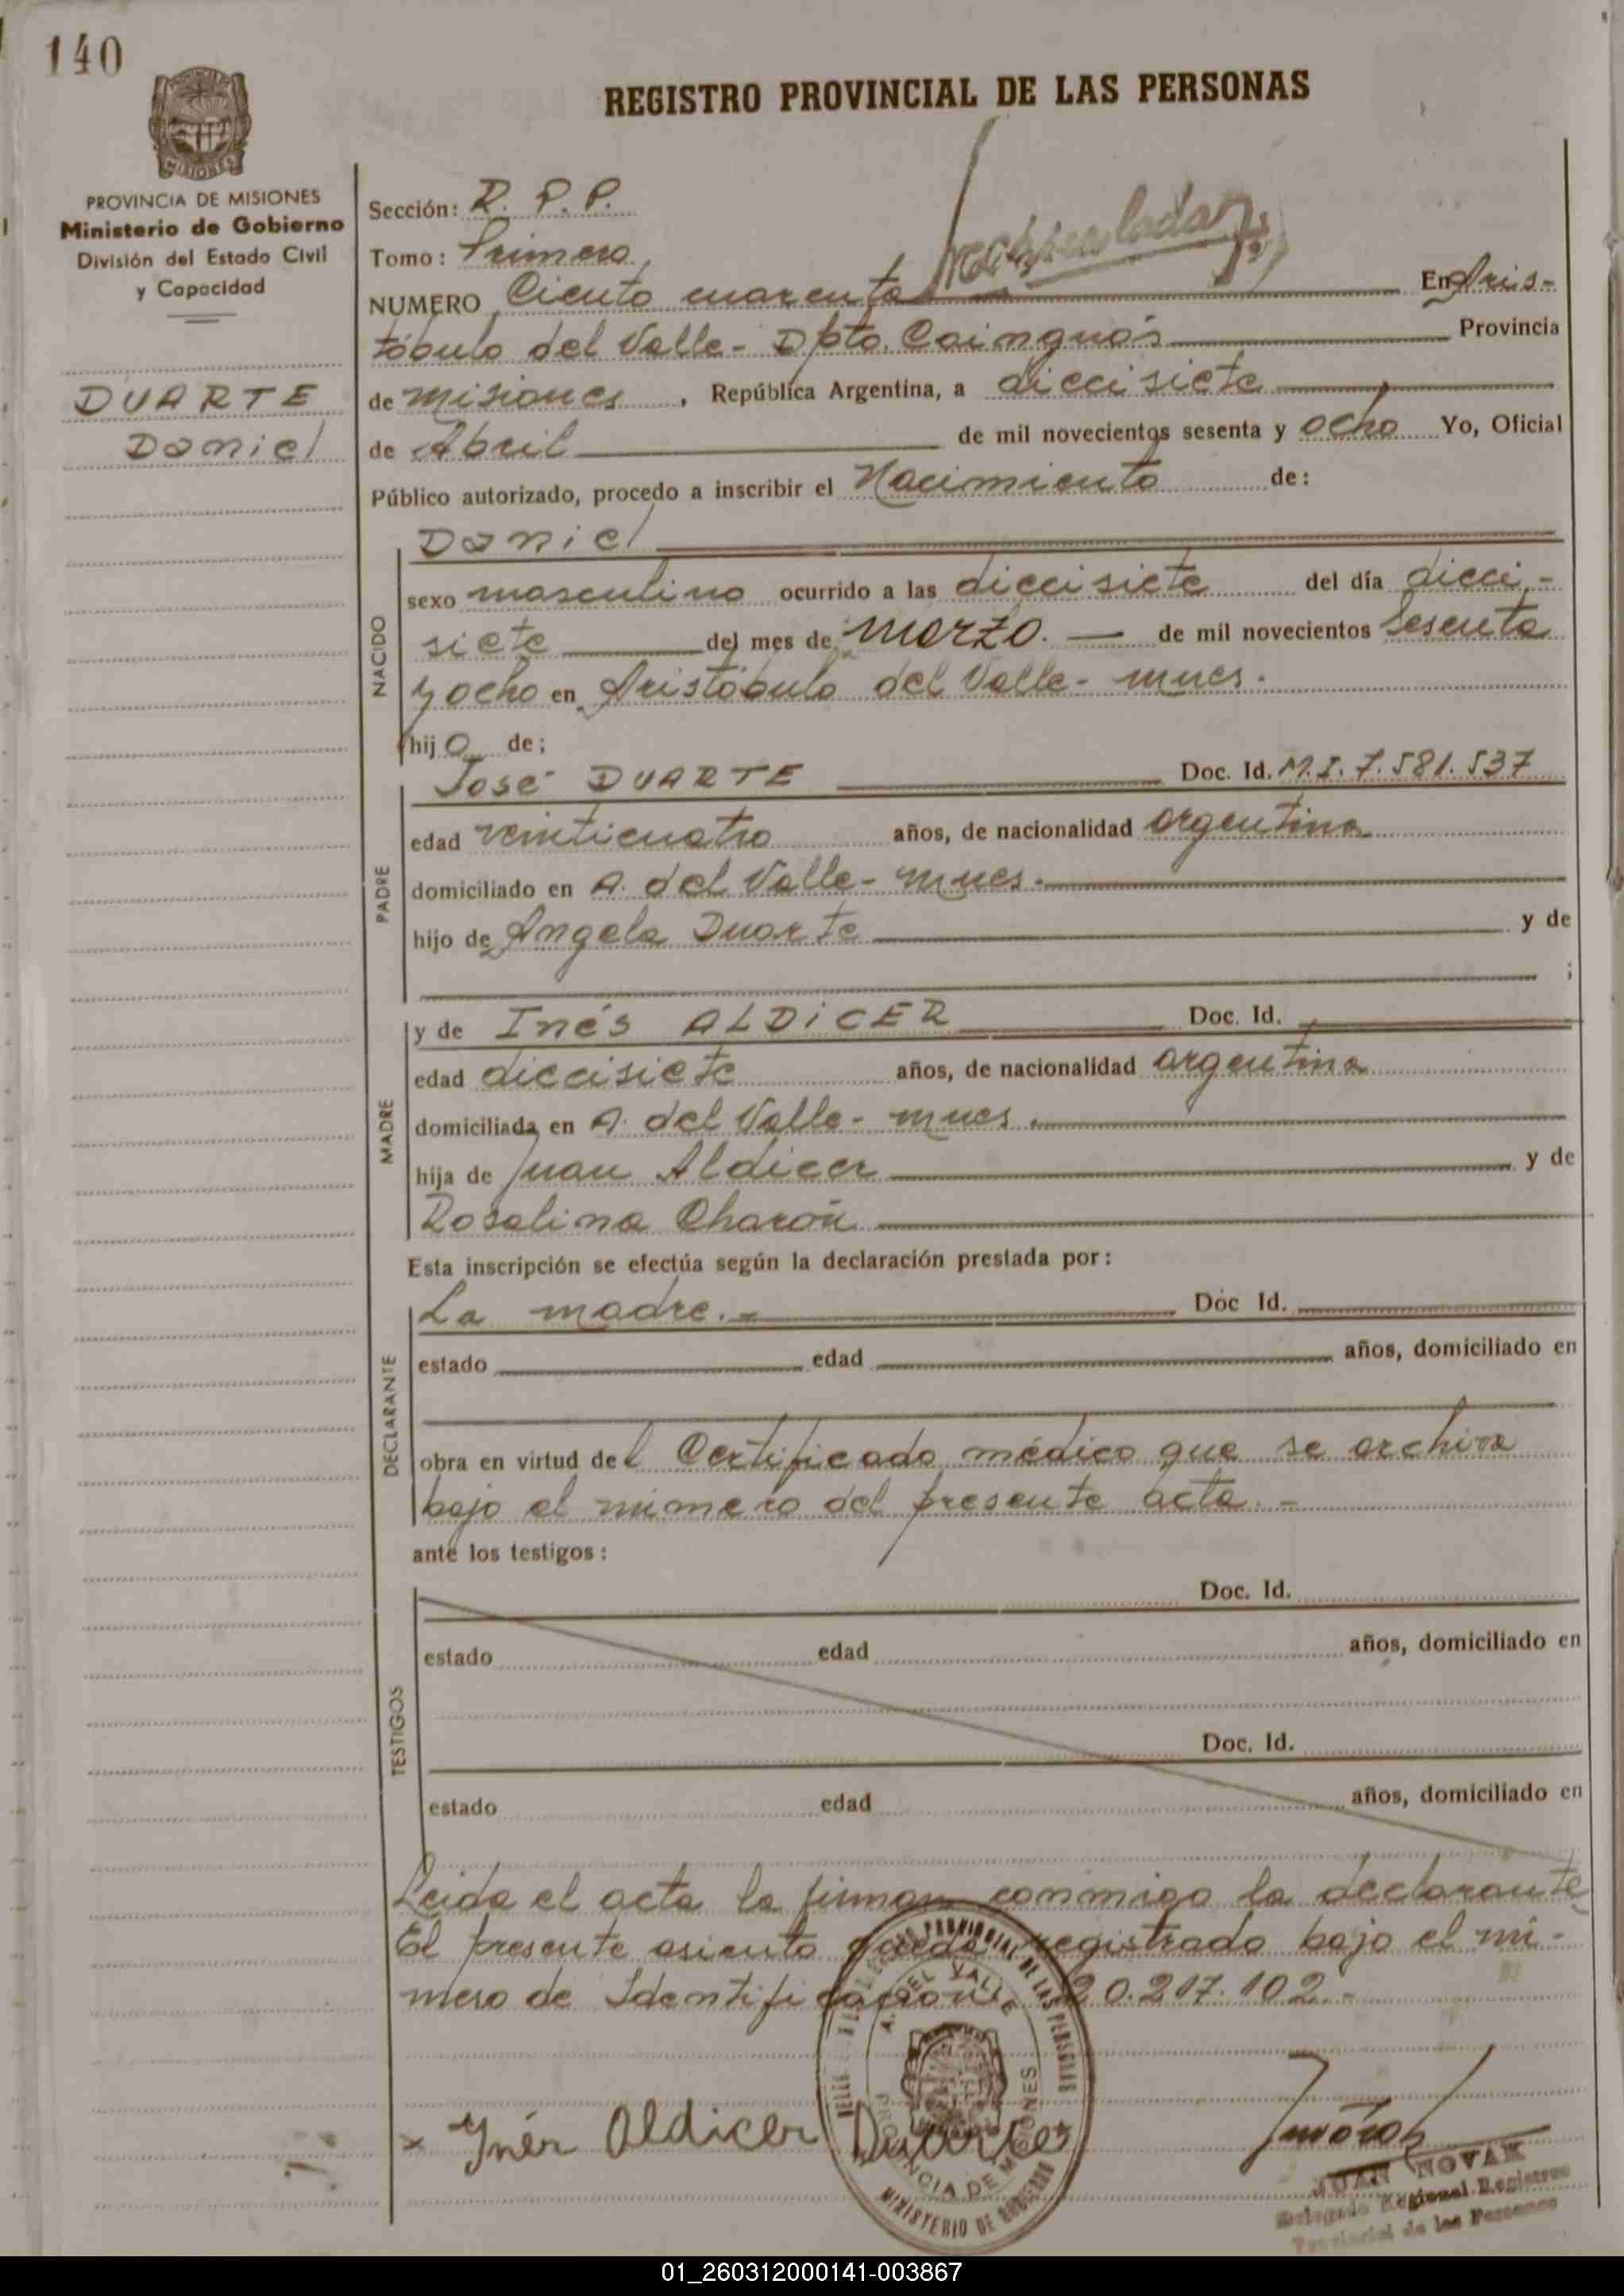 140
REGISTRO PROVINCIAL DE LAS PERSONAS
MISIONES
PROVINCIA DE MISIONES
Ministerio de Gobierno
División del Estado Civil
y Capacidad
DUARTE
Daniel
Sección: R. P. P.
Tomo: Primero
NUMERO Ciento cuarenta En Aris-
tóbulo del Valle - Dpto. Cainguás Provincia
de Misiones, República Argentina, a diecisiete
de Abril de mil novecientos sesenta y ocho Yo, Oficial
Público autorizado, procedo a inscribir el Nacimiento de:
NACIDO
Daniel
sexo masculino ocurrido a las diecisiete del día dieci-
siete del mes de Marzo. de mil novecientos sesenta
y ocho en Aristóbulo del Valle - mnes.
hijo de;
PADRE
José DUARTE Doc. Id. M.I. 7.581.537
edad veinticuatro años, de nacionalidad argentina
domiciliado en A. del Valle - mnes.
hijo de Angela Duarte y de
;
MADRE
y de Inés ALDICER Doc. Id.
edad diecisiete años, de nacionalidad argentina
domiciliada en A. del Valle - mnes.
hija de Juan Aldicer y de
Rosalina
Esta inscripción se efectúa según la declaración prestada por:
DECLARANTE
La madre. - Doc Id.
estado edad años, domiciliado en
obra en virtud del Certificado médico que se archiva
bajo el número del presente acta. -
ante los testigos:
TESTIGOS
Doc. Id.
estado edad años, domiciliado en
Doc. Id.
estado edad años, domiciliado en
Leida el acta la firman conmigo la declarante
El presente asiento queda registrado bajo el nú-
mero de Identificación: 20.217.102 -
PROVINCIAL DE LAS PERSONAS
A. DEL VALLE
PROVINCIA DE MISIONES
MINISTERIO DE GOBIERNO
x Ynés Aldicer Duarte
JUAN NOVAK
Delegado Regional Registro
Provincial de las Personas
01_260312000141-003867